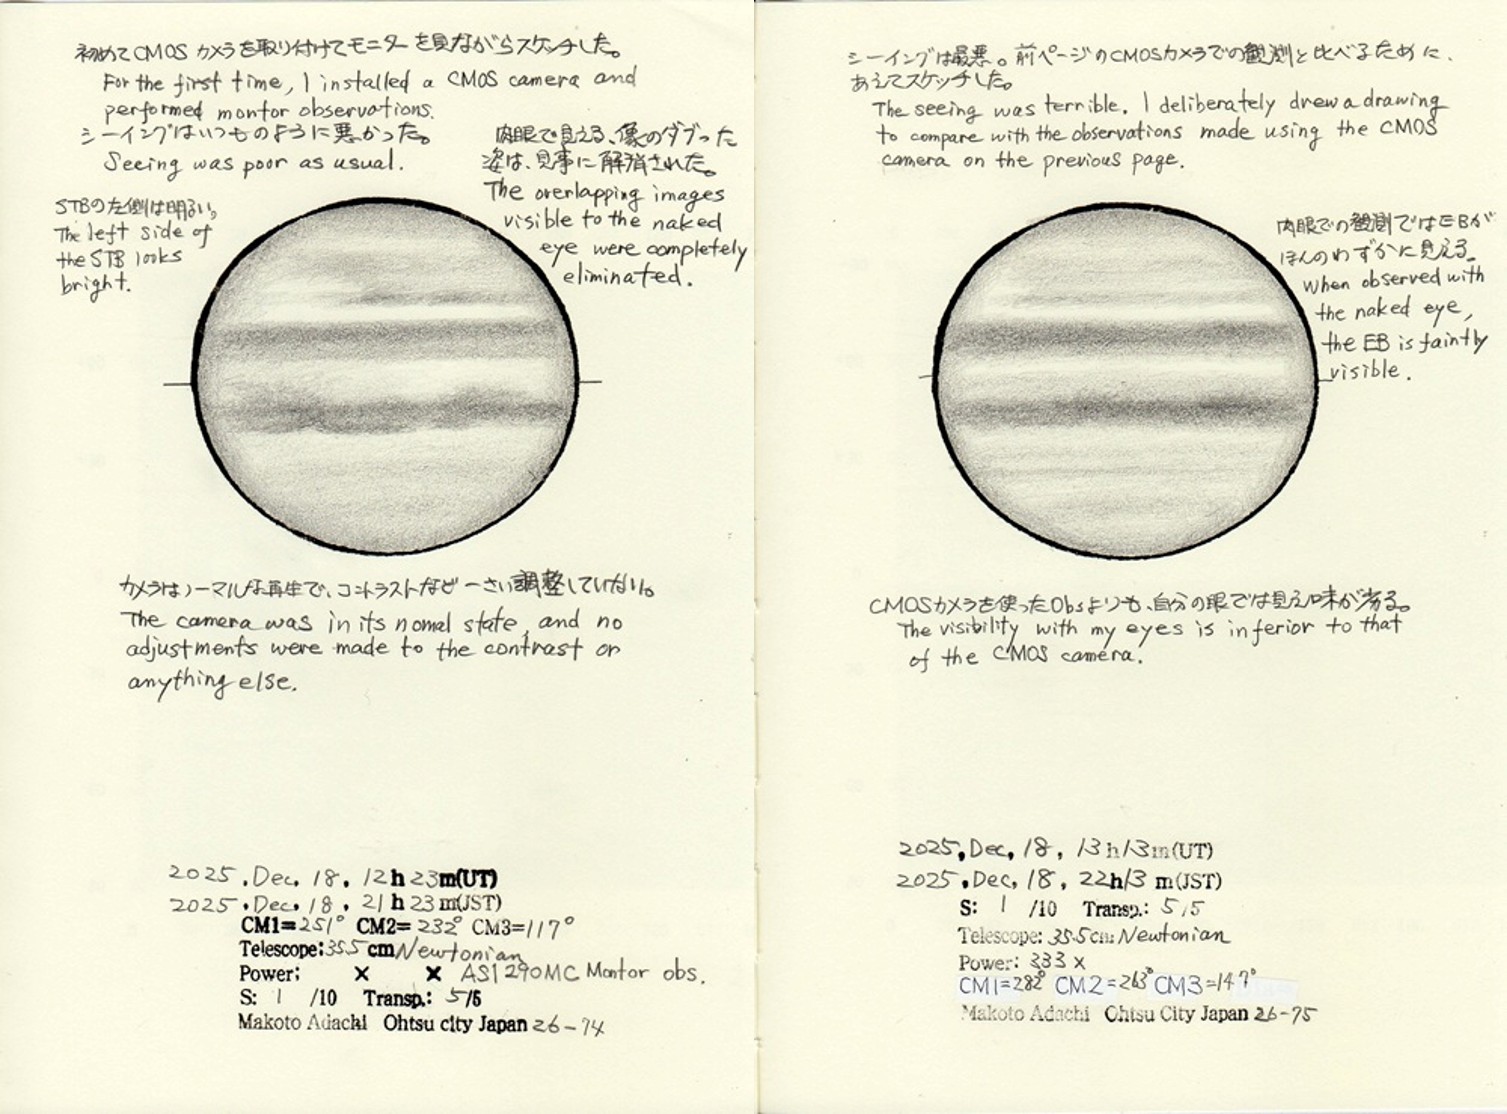 初めてCMOSカメラを取り付けてモニターを見ながらスケッチした。
For the first time, I installed a CMOS camera and
performed montor observations.
シーイングはいつものように悪かった。
Seeing was poor as usual.
肉眼で見える、像のダブった
姿は、見事に解消された。
The overlapping images
visible to the naked
eye were completely
eliminated.
STBの左側は明るい。
The left side of
the STB looks
bright.
カメラはノーマルな再生で、コントラストなど一さい調整していない。
The camera was in its nomal state, and no
adjustments were made to the contrast or
anything else.
2025.Dec.18. 12h23m(UT)
2025.Dec.18. 21h23m(JST)
CM1=251° CM2=232° CM3=117°
Telescope:35.5cm Newtonian
Power: × × ASI290MC Montor obs.
S: 1 /10 Transp.: 5/5
Makoto Adachi Ohtsu city Japan 26-74
シーイングは最悪。前ページのCMOSカメラでの観測と比べるために、
あえてスケッチした。
The seeing was terrible. I deliberately drew a drawing
to compare with the observations made using the CMOS
camera on the previous page.
肉眼での観測ではEBが
ほんのわずかに見える。
When observed with
the naked eye,
the EB is faintly
visible.
CMOSカメラを使ったObsよりも、自分の眼では見え味が劣る。
The visibility with my eyes is inferior to that
of the CMOS camera.
2025.Dec.18. 13h13m(UT)
2025.Dec.18. 22h13m(JST)
S: 1 /10 Transp.: 5/5
Telescope: 35.5cm Newtonian
Power: 333×
CM1=282° CM2=263° CM3=147°
Makoto Adachi Ohtsu City Japan 26-75